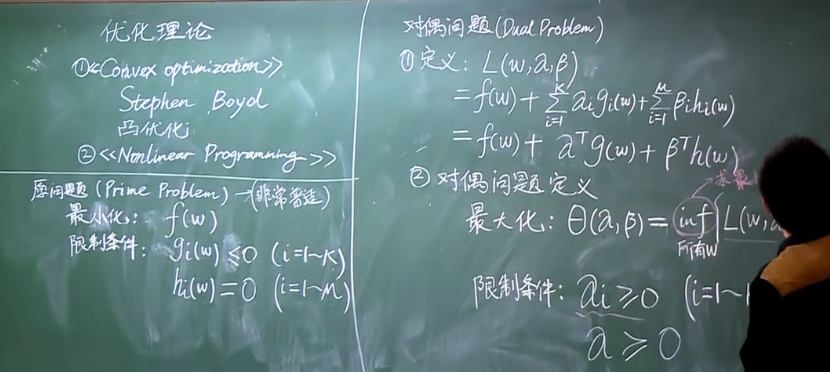 优化理论
①《Convex optimization》
Stephen Boyd
凸优化
②《Nonlinear Programming》
原问题(Prime Problem)→(非常普适)
最小化: f(w)
限制条件: gi(w)≤0 (i=1~K)
hi(w)=0 (i=1~M)
对偶问题(Dual Problem)
①定义: L(w,α,β)
=f(w)+∑_{i=1}^{K} αigi(w)+∑_{i=1}^{M} βihi(w)
=f(w)+α^Tg(w)+β^Th(w)
②对偶问题定义
求最
最大化: Θ(α,β)=inf L(w,α
所有w
限制条件: αi≥0 (i=1~
α≥0